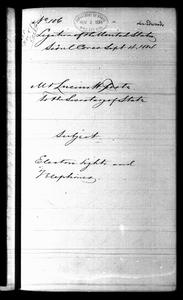 No 106
Legation of the United States
Seoul Corea Sept 4, 1884
Mr Lucius H. Foote
To the Secretary of State
Subject
Electric lights and
Telephones.